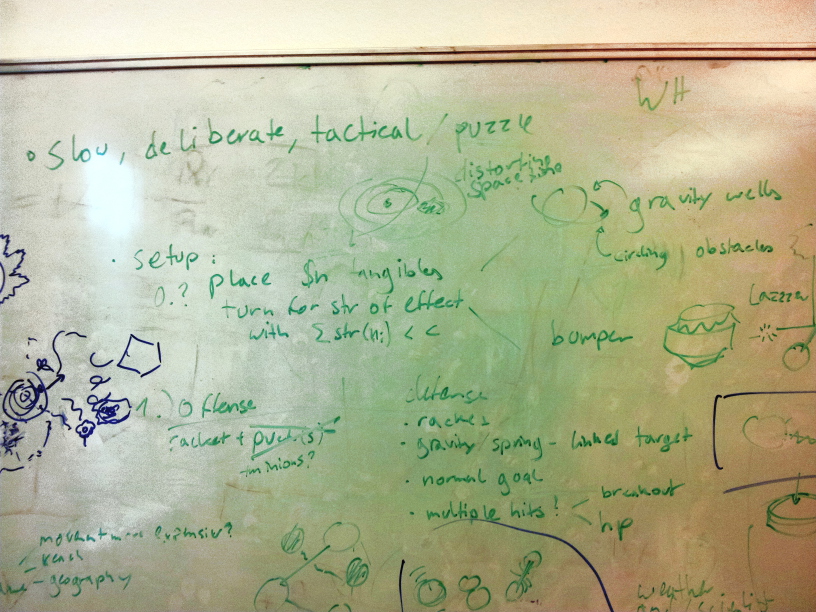 WH
• slow, deliberate, tactical / puzzle
distorting
space time
gravity wells
circling obstacles
• setup:
0.? place $n tangibles
turn for str of effect
with Σ str(n;) < c
bumper
1.) Offense
racket + puck(s)
+minions?
defense
• gravity/spring - linked target
• normal goal
• multiple hits?
breakout
hp
- geography
weather